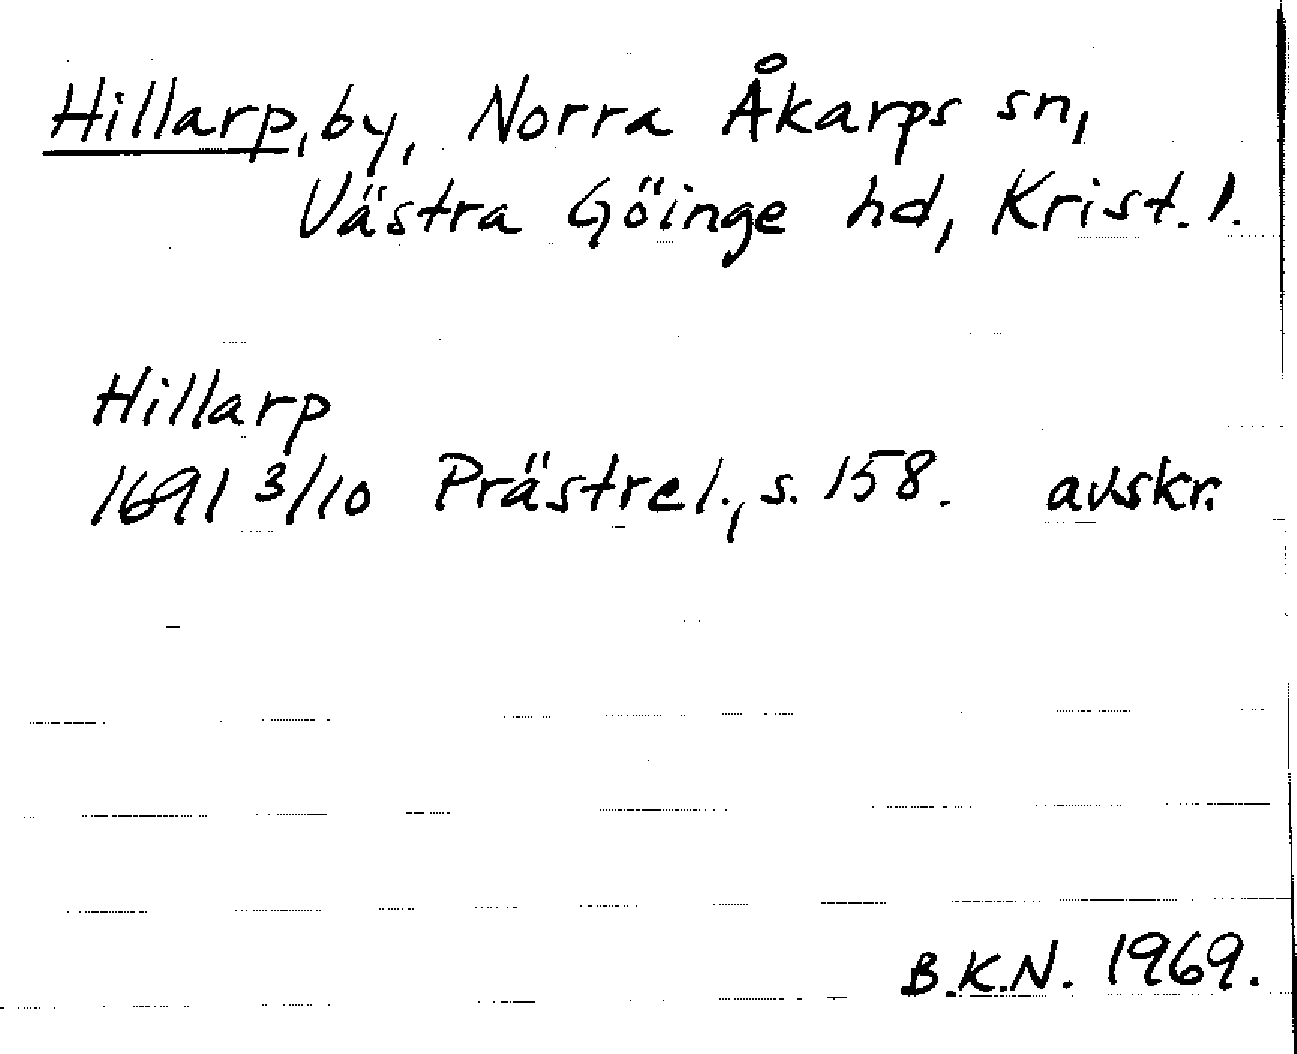 Hillarp, by, Norra Åkarps sn,
Västra Göinge hd, Krist. l.
Hillarp
1691 3/10 Prästrel., s. 158. avskr.
B.K.N. 1969.